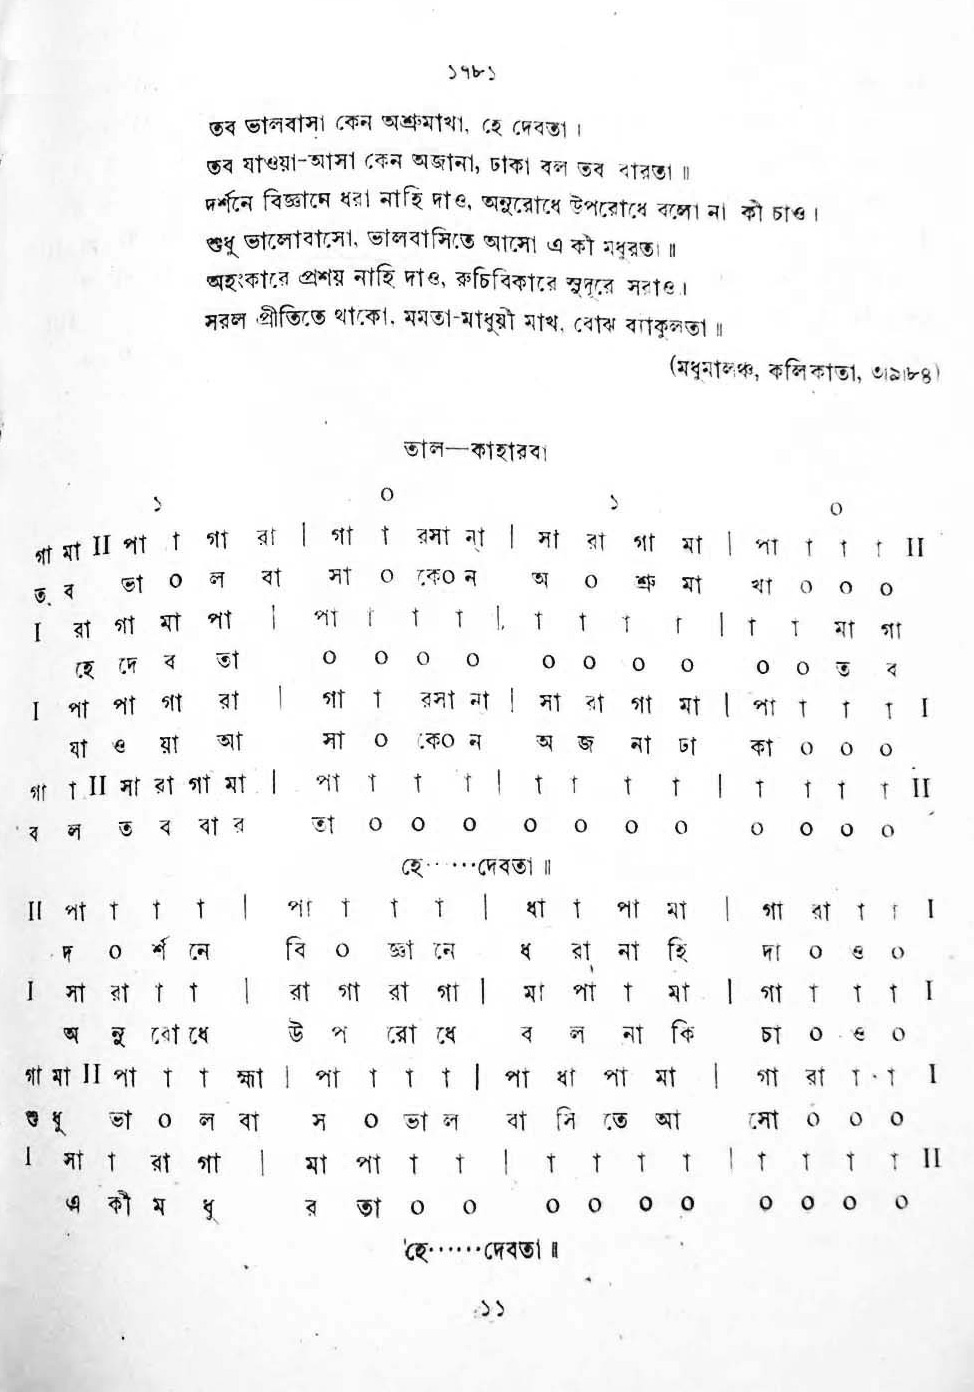 ১৭৮১
তব ভালবাসা কেন অশ্রুমাখা, হে দেবতা।
তব যাওয়া-আসা কেন অজানা, ঢাকা বল তব বারতা॥
দর্শনে বিজ্ঞানে ধরা নাহি দাও, অনুরোধে উপরোধে বলো না কী চাও।
শুধু ভালোবাসো, ভালবাসিতে আসো এ কী মধুরতা॥
অহংকারে প্রশয় নাহি দাও, রুচিবিকারে সুদূরে সরাও।
সরল প্রীতিতে থাকো, মমতা-মাধুয়ী মাখ, বোঝ ব্যাকুলতা॥
(মধুমালঞ্চ, কলিকাতা, ৩।৯।৮৪)
তাল—কাহারবা
১ ০ ১ ০
গা মা II পা া গা রা | গা া রসা না্ | সা রা গা মা | পা া া া II
ত ব ভা ০ ল বা সা ০ কে০ ন অ ০ শ্রু মা খা ০ ০ ০
I রা গা মা পা | পা া া া | া া া া | া া মা গা
হে দে ব তা ০ ০ ০ ০ ০ ০ ০ ০ ০ ০ ত ব
I পা পা গা রা | গা া রসা না | সা রা গা মা | পা া া া I
যা ও য়া আ সা ০ কে০ ন অ জ না ঢা কা ০ ০ ০
গা া II সা রা গা মা | পা া া া | া া া া | া া া া II
ব ল ত ব বা র তা ০ ০ ০ ০ ০ ০ ০ ০ ০ ০ ০
হে······দেবতা॥
II পা া া া | পা া া া | ধা া পা মা | গা রা া া I
দ ০ র্শ নে বি ০ জ্ঞা নে ধ রা না হি দা ০ ও ০
I সা রা া া | রা গা রা গা | মা পা া মা | গা া া া I
অ নু রো ধে উ প রো ধে ব ল না কি চা ০ ও ০
গা মা II পা া া হ্মা | পা া া া | পা ধা পা মা | গা রা া া I
শু ধু ভা ০ ল বা স ০ ভা ল বা সি তে আ সো ০ ০ ০
I সা া রা গা | মা পা া া | া া া া | া া া া II
এ কী ম ধু র তা ০ ০ ০ ০ ০ ০ ০ ০ ০ ০
হে······দেবতা॥
১১